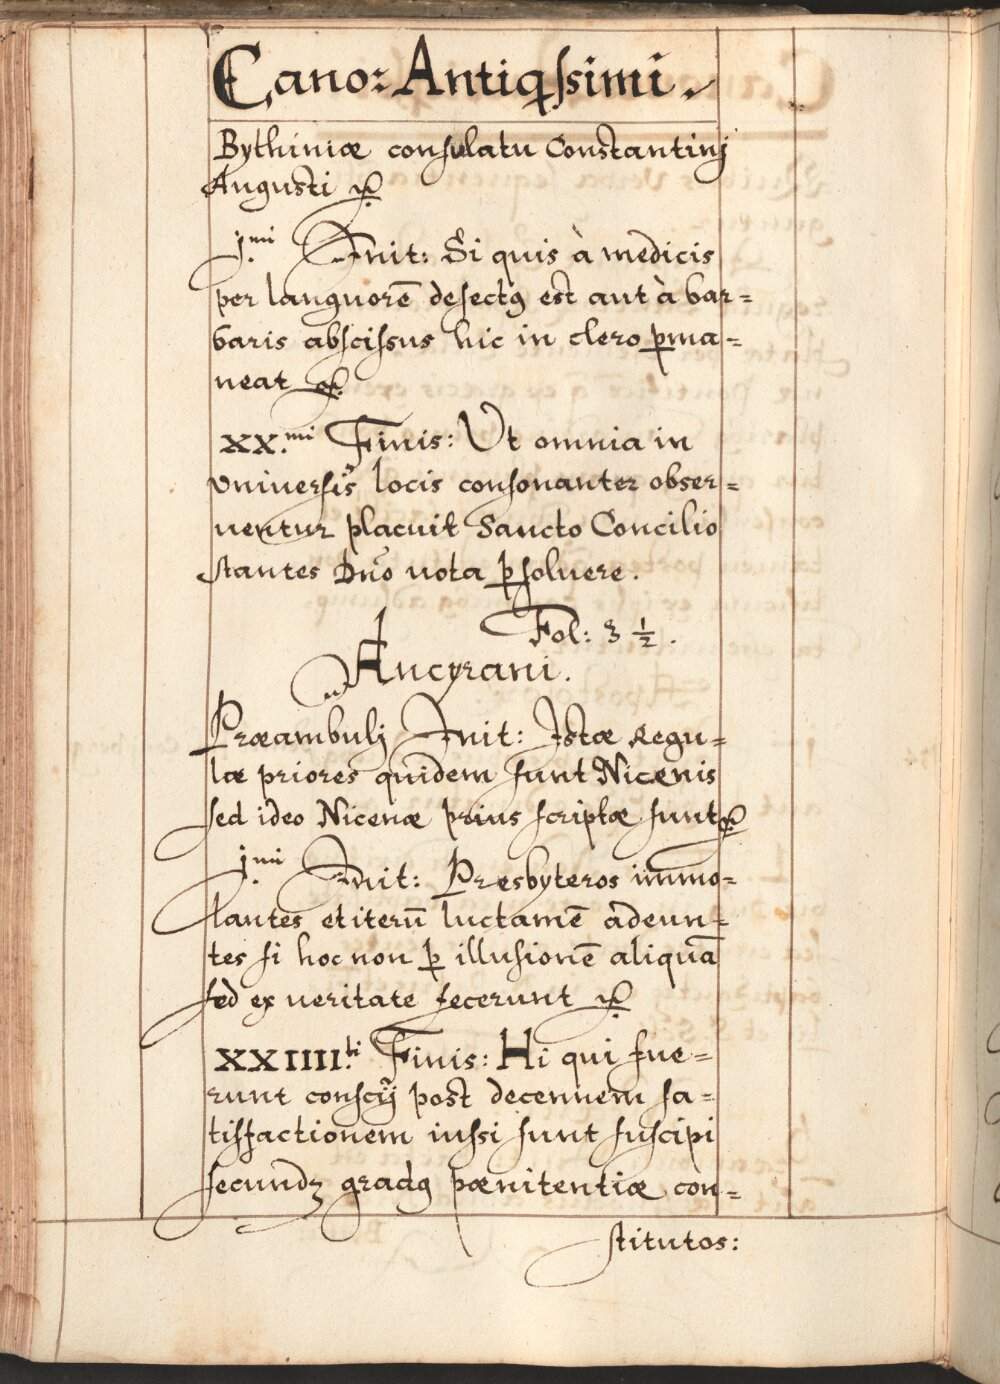 Cano: Antiqssimi.
Bythiniæ consulatu Constantinj
Augusti &c.
j.mi Init: Si quis à medicis
per languorē desectꝰ est aut à bar=
baris abscissus hic in clero ꝑma=
neat &c.
XX.mi Finis: Vt omnia in
vniversis locis consonanter obser=
uentur placuit Sancto Concilio
stantes Dño uota ꝑsoluere.
Fol: 3 ½.
Ancyrani.
Præambulj Init: Istæ Regu=
læ priores quidem sunt Nicenis
sed ideo Nicenæ prius scriptæ sunt &c.
j.mi Init: Presbyteros immo=
lantes et iterū luctamē adeun=
tes si hoc non ꝑ illusionē aliquā
sed ex ueritate fecerunt &c.
XXIIII.ti Finis: Hi qui fue=
runt conscij post decennem sa=
tisfactionem iussi sunt suscipi
secundꝫ gradꝰ pœnitentiæ con=
stitutos: